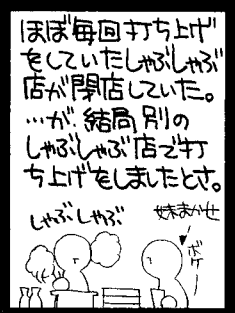 ほぼ毎回打ち上げ
をしていたしゃぶしゃぶ
店が閉店していた。
…が、結局別の
しゃぶしゃぶ店で打
ち上げをしましたとさ。
しゃぶしゃぶ
妹まかせ
ボケー